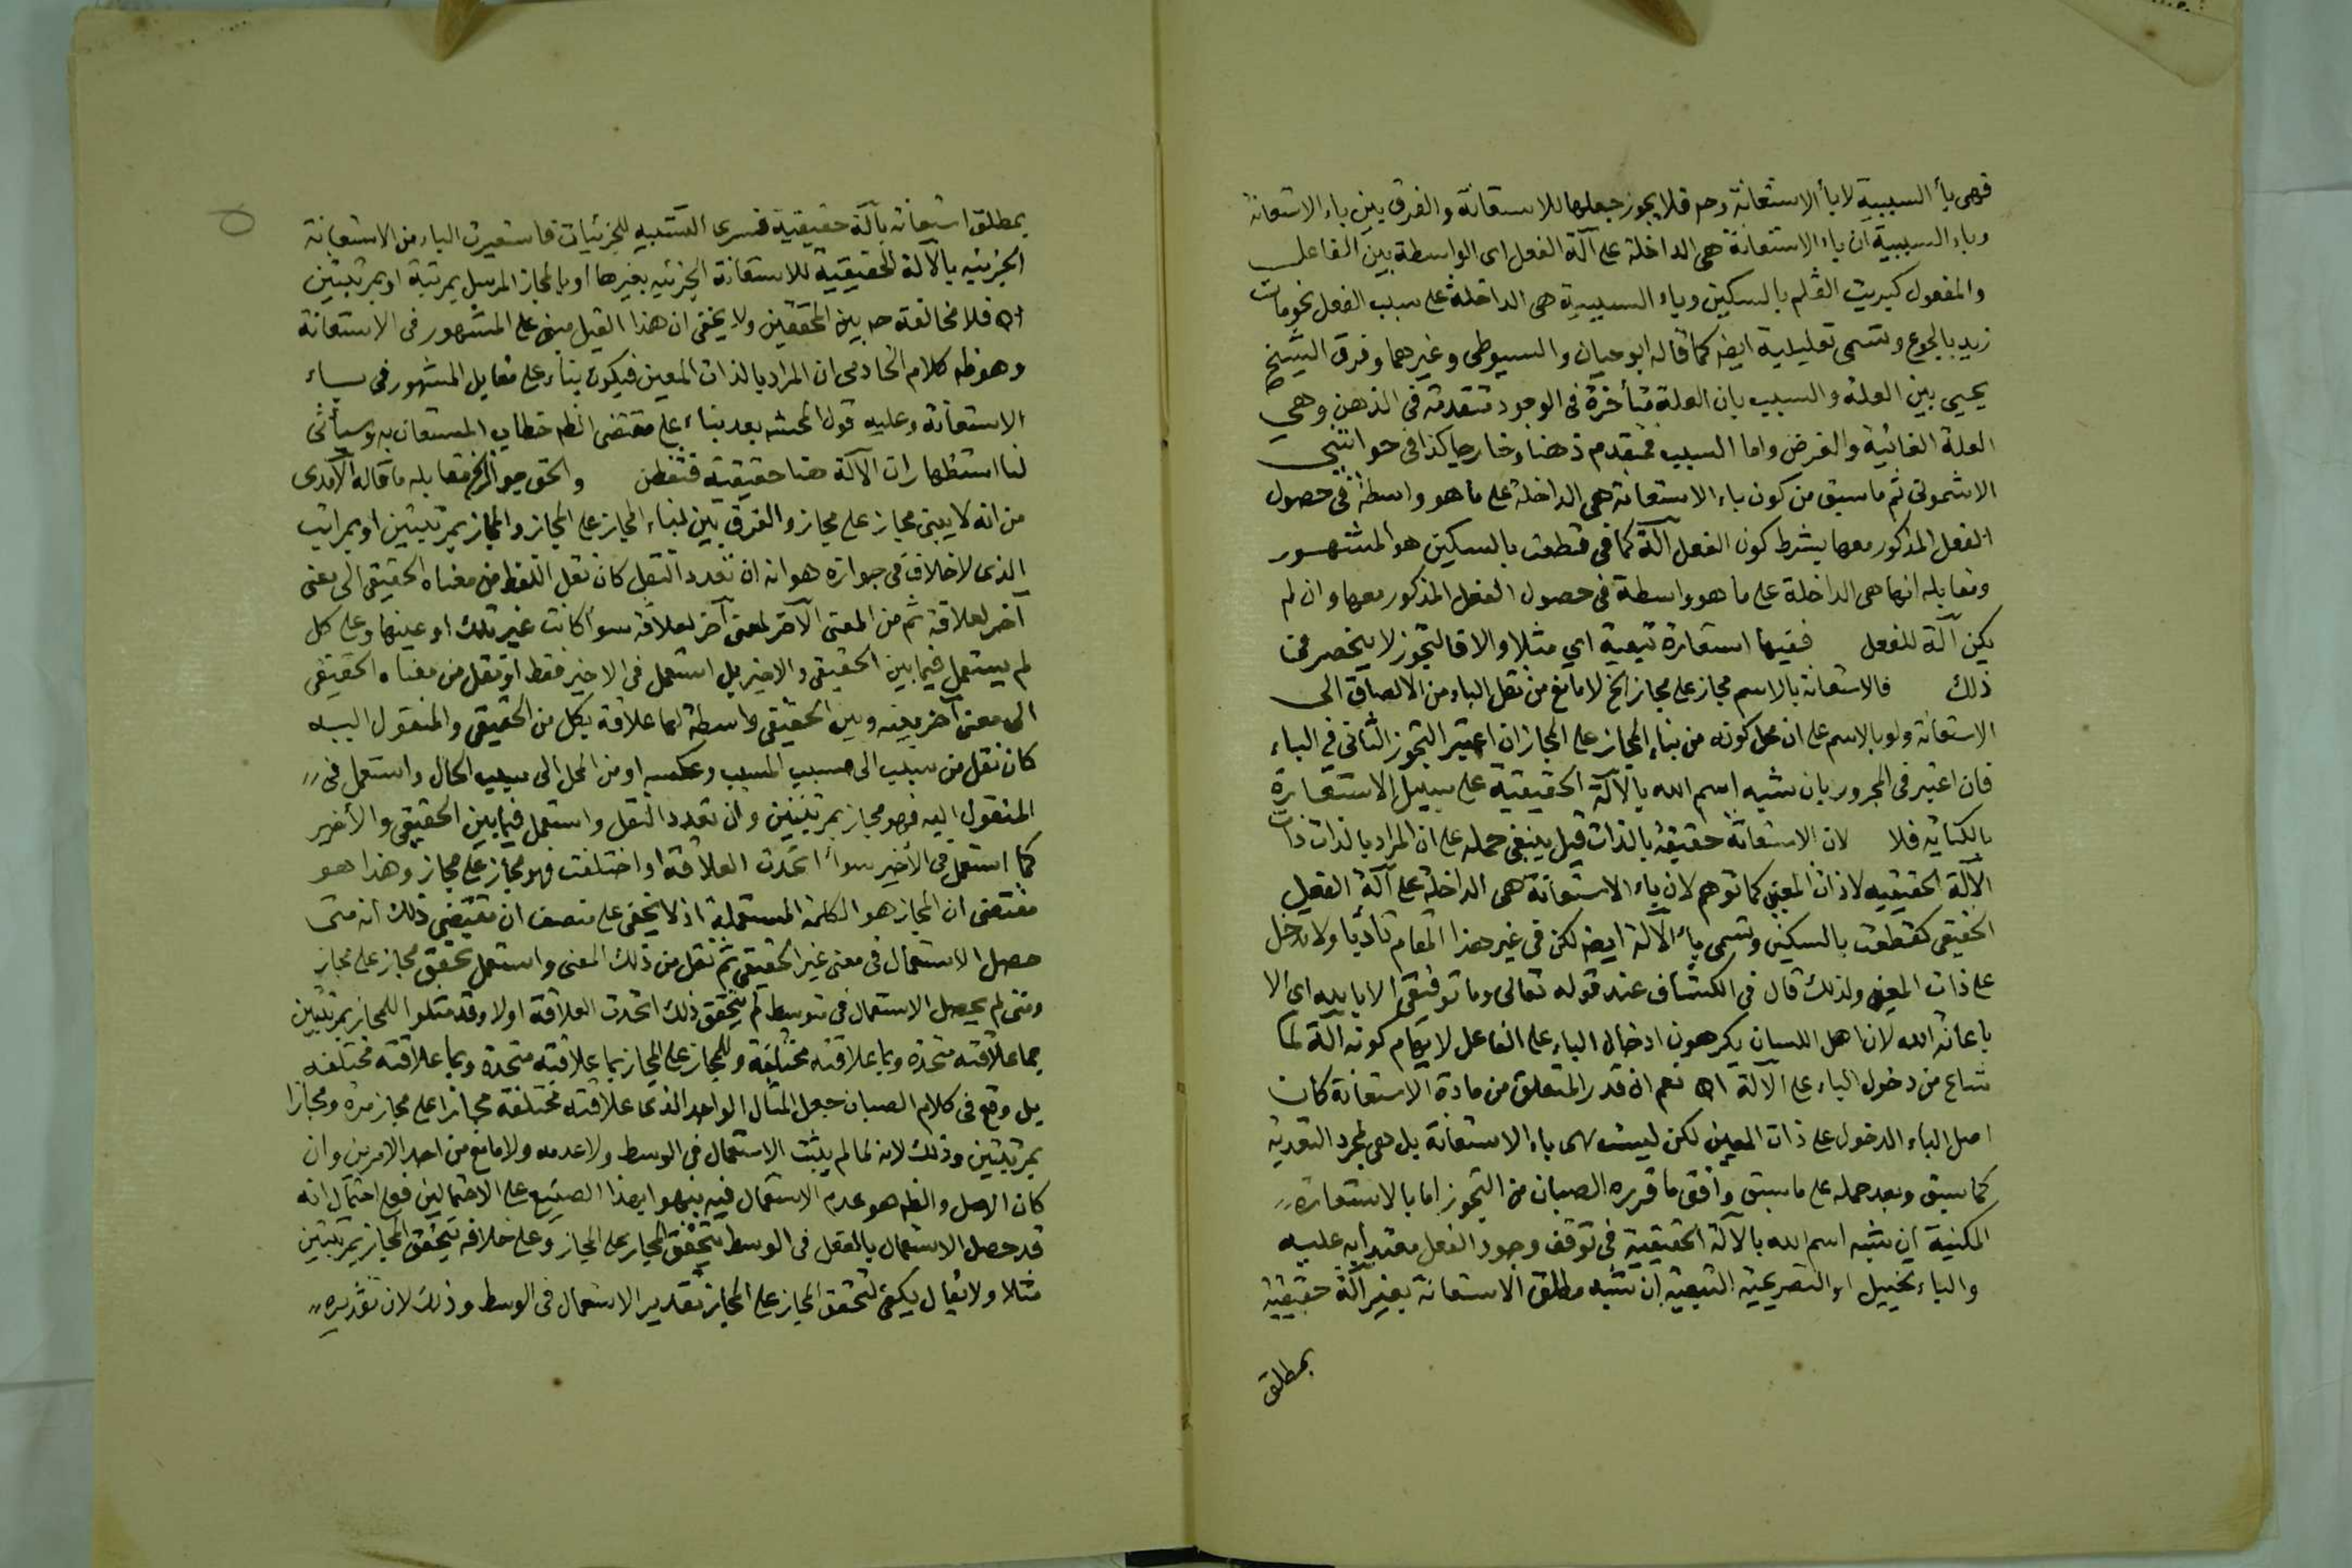 فهى بأ السببية لا بأ الاستعانة وحـ فلا يجوز جعلها للاستعانة والفرق بين باء الاستعانة
وباء السببية ان باء الاستعانة هى الداخلة على آلة الفعل اى الواسطة بين الفاعل
والمفعول كبريت القلم بالسكين وباء السببية هى الداخلة على سبب الفعل نحو مات
زيد بالجوع وتسمى تعليلية ايضا كما قاله ابو حيان والسيوطى وغيرهما وفرق الشيخ
يحيى بين العلة والسبب بان العلة متأخرة فى الوجود متقدمة فى الذهن وهي
العلة الغائية والغرض واما السبب فمتقدم ذهنا وخارجا كذا فى حواشي
الاشمونى ثم ما سبق من كون باء الاستعانة هى الداخلة على ما هو واسطة فى حصول
الفعل المذكور معها بشرط كون الفعل آلة كما فى قطعت بالسكين هو المشهور
ومقابله انها هى الداخلة على ما هو واسطة فى حصول الفعل المذكور معها وان لم
يكن آلة للفعل ففيها استعارة تبعية اي مثلا والا فالتجوز لا ينحصر فى
ذلك فالاستعانة بالاسم مجاز على مجاز الخ لا مانع من نقل الباء من الالصاق الى
الاستعانة ولو بالاسم على ان محل كونه من بناء المجاز على المجاز ان اعتبر التجوز الثانى فى الباء
فان اعتبر فى المجرور بان شبه اسم الله بالآلة الحقيقية على سبيل الاستعارة
بالكناية فلا لان الاستعانة حقيقة بالذات قيل ينبغى حمله على ان المراد بالذات ذات
الآلة الحقيقيه لا ذات المعين كما توهم لان باء الاستعانة هى الداخلة على آلة الفعل
الحقيقى كقطعت بالسكين وتسمى باء الآلة ايضا لكن فى غير هذا المقام تأدبا ولا تدخل
على ذات المعين ولذلك قال فى الكشاف عند قوله تعالى وما توفيقى الا بالله اى الا
باعانة الله لان اهل اللسان يكرهون ادخال الباء على الفاعل لايهام كونه آلة لما
شاع من دخول الباء على الآلة اه نعم ان قدر المتعلق من مادة الاستعانة كان
اصل الباء الدخول على ذات المعين لكن ليست هى باء الاستعانة بل هى لمجرد التعدية
كما سبق وبعد حمله على ما سبق وافق ما قرره الصبان من التجوز اما بالاستعارة
المكنية ان شبه اسم الله بالآلة الحقيقية فى توقف وجود الفعل معتدا به عليه
والباء تخييل او التصريحية التبعية ان شبه مطلق الاستعانة بغير آلة حقيقية
بمطلق
بمطلق استعانة بآلة حقيقية فسرى التشبيه للجزئيات فاستعيرت الباء من الاستعانة
الجزئيه بالآلة الحقيقية للاستعانة الجزئيه بغيرها او بالمجاز المرسل بمرتبة او بمرتبتين
اه فلا مخالفة حـ بين المحققين ولا يخفى ان هذا القيل مبنى على المشهور فى الاستعانة
وهو ظـ كلام الخادمى ان المراد بالذات المعين فيكون بناء على مقابل المشهور فى باء
الاستعانة وعليه قول المحشـ بعد بناء على مقتضى الظـ خطاب المستعان به وسيأتى
لنا استظهار ان الآلة هنا حقيقية فتفطن والحق جواز الخ مقابله ما قاله الآمدى
من انه لا يبنى مجاز على مجاز والفرق بين بناء المجاز على المجاز والمجاز بمرتبتين او بمراتب
الذى لا خلاف فى جوازه هو انه ان تعدد النقل كان نقل اللفظ من معناه الحقيقى الى معنى
آخر لعلاقة ثم من المعنى الآخر لمعنى آخر لعلاقة سوأ كانت غير تلك او عينها وعلى كل
لم يستعمل فيما بين الحقيقى والاخير بل استعمل فى الاخير فقط او نقل من معناه الحقيقى
الى معنى آخر بينه وبين الحقيقى واسطة لها علاقة بكل من الحقيقى والمنقول اليه
كان نقل من سبب الى مسبب المسبب وعكسه او من المحل الى سبب الحال واستعمل فى
المنقول اليه فهو مجاز بمرتبتين وان تعدد النقل واستعمل فيما بين الحقيقى والأخير
كما استعمل فى الأخير سوأ اتحدت العلاقة او اختلفت فهو مجاز على مجاز وهذا هو
مقتضى ان المجاز هو الكلمة المستعملة اذ لا يخفى على منصف ان مقتضى ذلك انه متى
حصل الاستعمال فى معنى غير الحقيقى ثم نقل من ذلك المعنى واستعمل تحقق مجاز على مجاز
ومتى لم يحصل الاستعمال فى متوسط لم يتحقق ذلك اتحدت العلاقة اولا وقد مثلوا للمجاز بمرتبتين
بما علاقته متحدة وبما علاقته مختلفة وللمجاز على المجاز بما علاقته متحدة وبما علاقته مختلفه
بل وقع فى كلام الصبان جعل المثال الواحد الذى علاقته مختلفة مجازا على مجاز مرة ومجازا
بمرتبتين وذلك لانه لما لم يثبت الاستعمال فى الوسط ولا عدمه ولا مانع من احد الامرين وان
كان الاصل والظـ هو عدم الاستعمال فيه نبهوا بهذا الصنيع على الاحتمالين فعلى احتمال انه
قد حصل الاستعمال بالفعل فى الوسط يتحقق المجاز على المجاز وعلى خلافه يتحقق المجاز بمرتبتين
مثلا ولا يقال يكفى لتحقق المجاز على المجاز تقدير الاستعمال فى الوسط وذلك لان تقديره